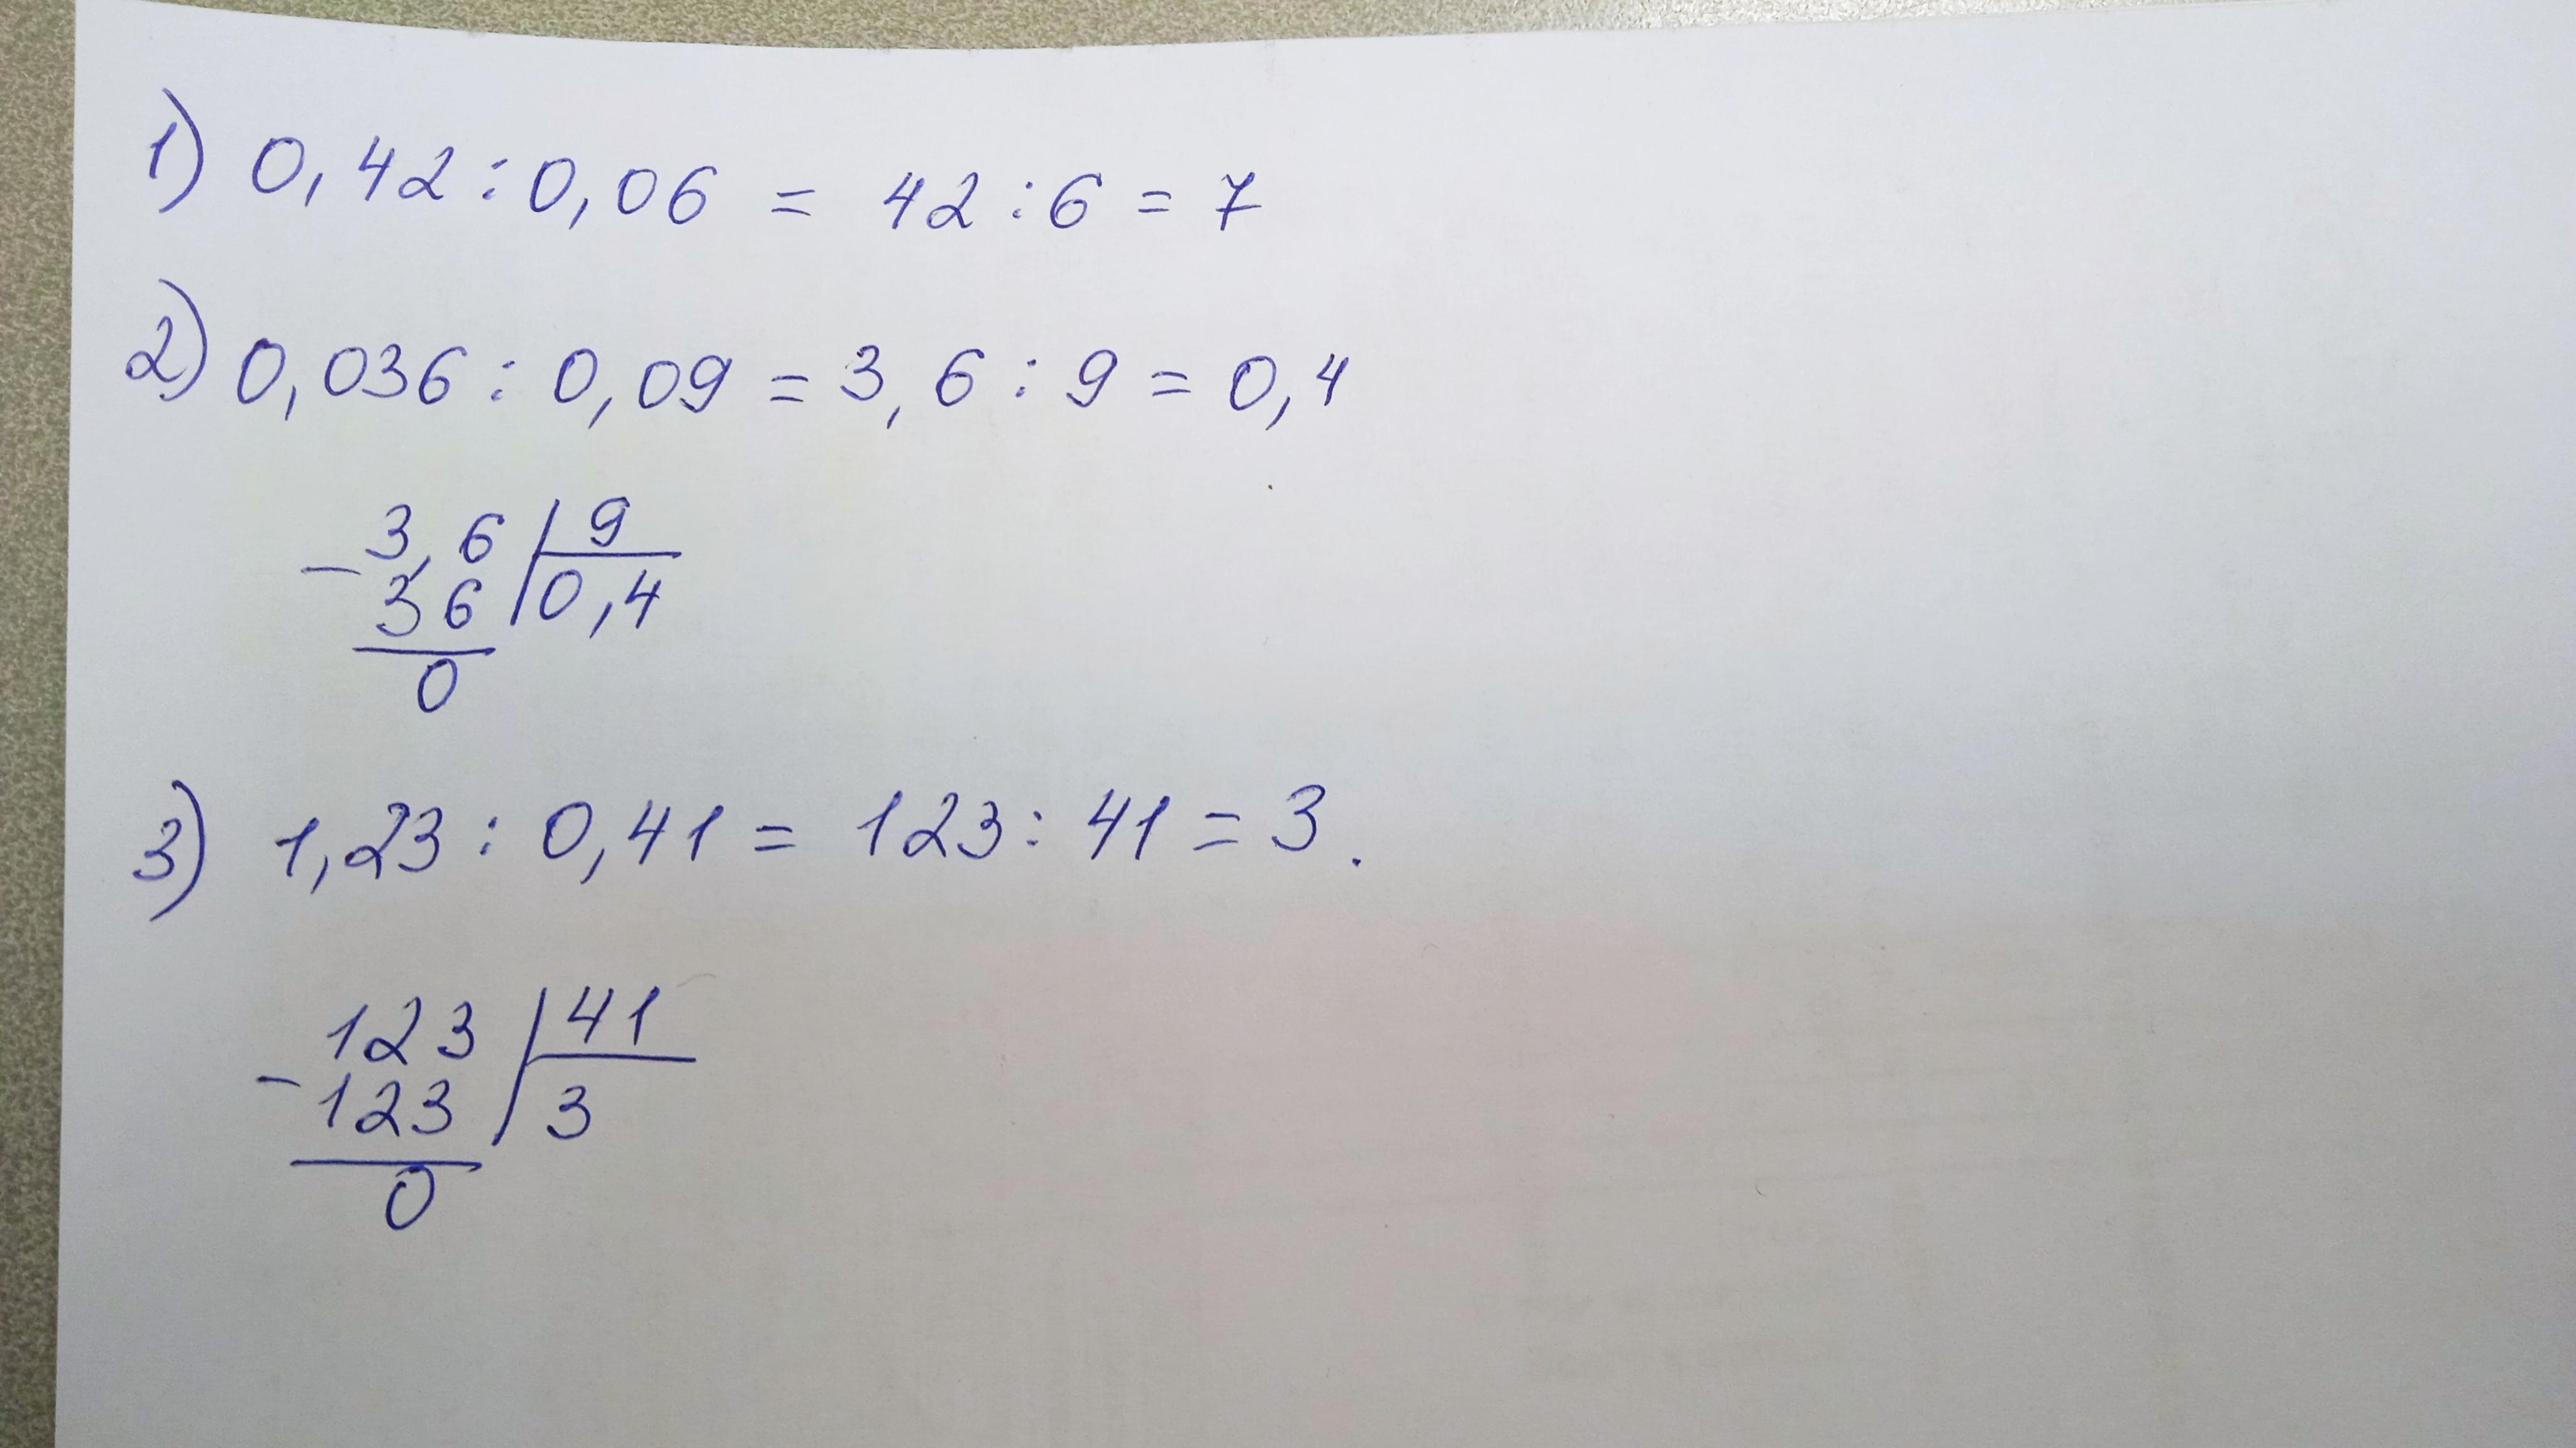 1) 0,42 : 0,06 = 42 : 6 = 7
2) 0,036 : 0,09 = 3,6 : 9 = 0,4
3,6 | 9
- 36 | 0,4
0
3) 1,23 : 0,41 = 123 : 41 = 3.
123 | 41
- 123 | 3
0